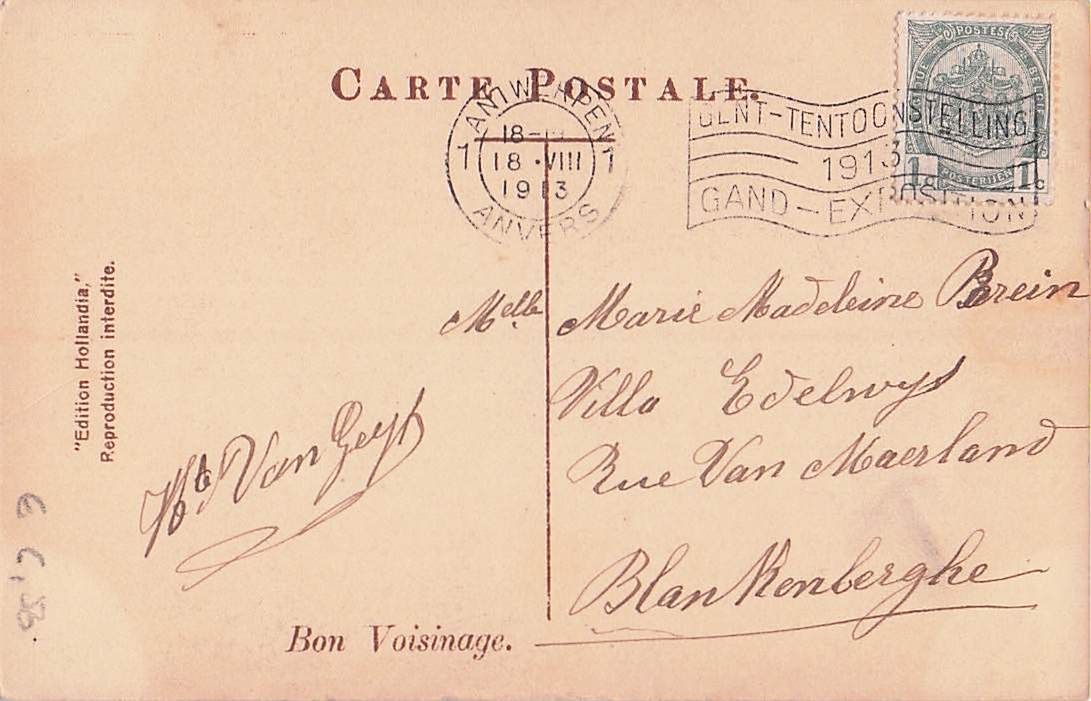 CARTE POSTALE.
ANTWERPEN
1 18-1 1
18 · VIII
1913
ANVERS
GENT-TENTOONSTELLING
1913
GAND-EXPOSITION
POSTES
1c POSTERIJEN 1c
"Edition Hollandia,"
Reproduction interdite.
Melle Marie Madeleine Brein
Villa Edelwys
Rue Van Maerland
Blankenberghe
Van Geyt
Bon Voisinage.